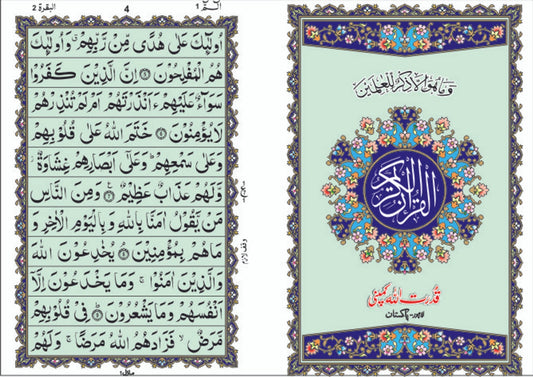 البقرة ٢
4
الٓمّٓ ١
اُولٰٓئِكَ عَلٰى هُدًى مِّنْ رَّبِّهِمْ ۗ وَاُولٰٓئِكَ
هُمُ الْمُفْلِحُوْنَ ۝ اِنَّ الَّذِيْنَ كَفَرُوْا
سَوَآءٌ عَلَيْهِمْ ءَاَنْذَرْتَهُمْ اَمْ لَمْ تُنْذِرْهُمْ
لَا يُؤْمِنُوْنَ ۝ خَتَمَ اللّٰهُ عَلٰى قُلُوْبِهِمْ
وَعَلٰى سَمْعِهِمْ ؕ وَعَلٰٓى اَبْصَارِهِمْ غِشَاوَةٌ ؗ
وَّلَهُمْ عَذَابٌ عَظِيْمٌ ۝ وَمِنَ النَّاسِ
مَنْ يَّقُوْلُ اٰمَنَّا بِاللّٰهِ وَبِالْيَوْمِ الْاٰخِرِ وَ
مَا هُمْ بِمُؤْمِنِيْنَ ۝ يُخٰدِعُوْنَ اللّٰهَ
وَالَّذِيْنَ اٰمَنُوْا ۚ وَمَا يَخْدَعُوْنَ اِلَّآ
اَنْفُسَهُمْ وَمَا يَشْعُرُوْنَ ۝ فِيْ قُلُوْبِهِمْ
مَّرَضٌ ۙ فَزَادَهُمُ اللّٰهُ مَرَضًا ۚ وَلَهُمْ
وقف لازم
منزل ١
وما هو الا ذكر للعلمين
القرآن الكريم
قدرت اللہ کمپنی
لاہور - پاکستان